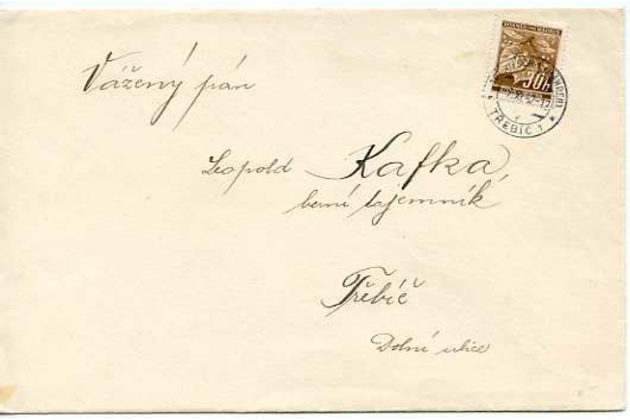 Vážený pán
Leopold Kafka,
berní tajemník
Třebíč
Dolní ulice
30h
TŘEBÍČ 1